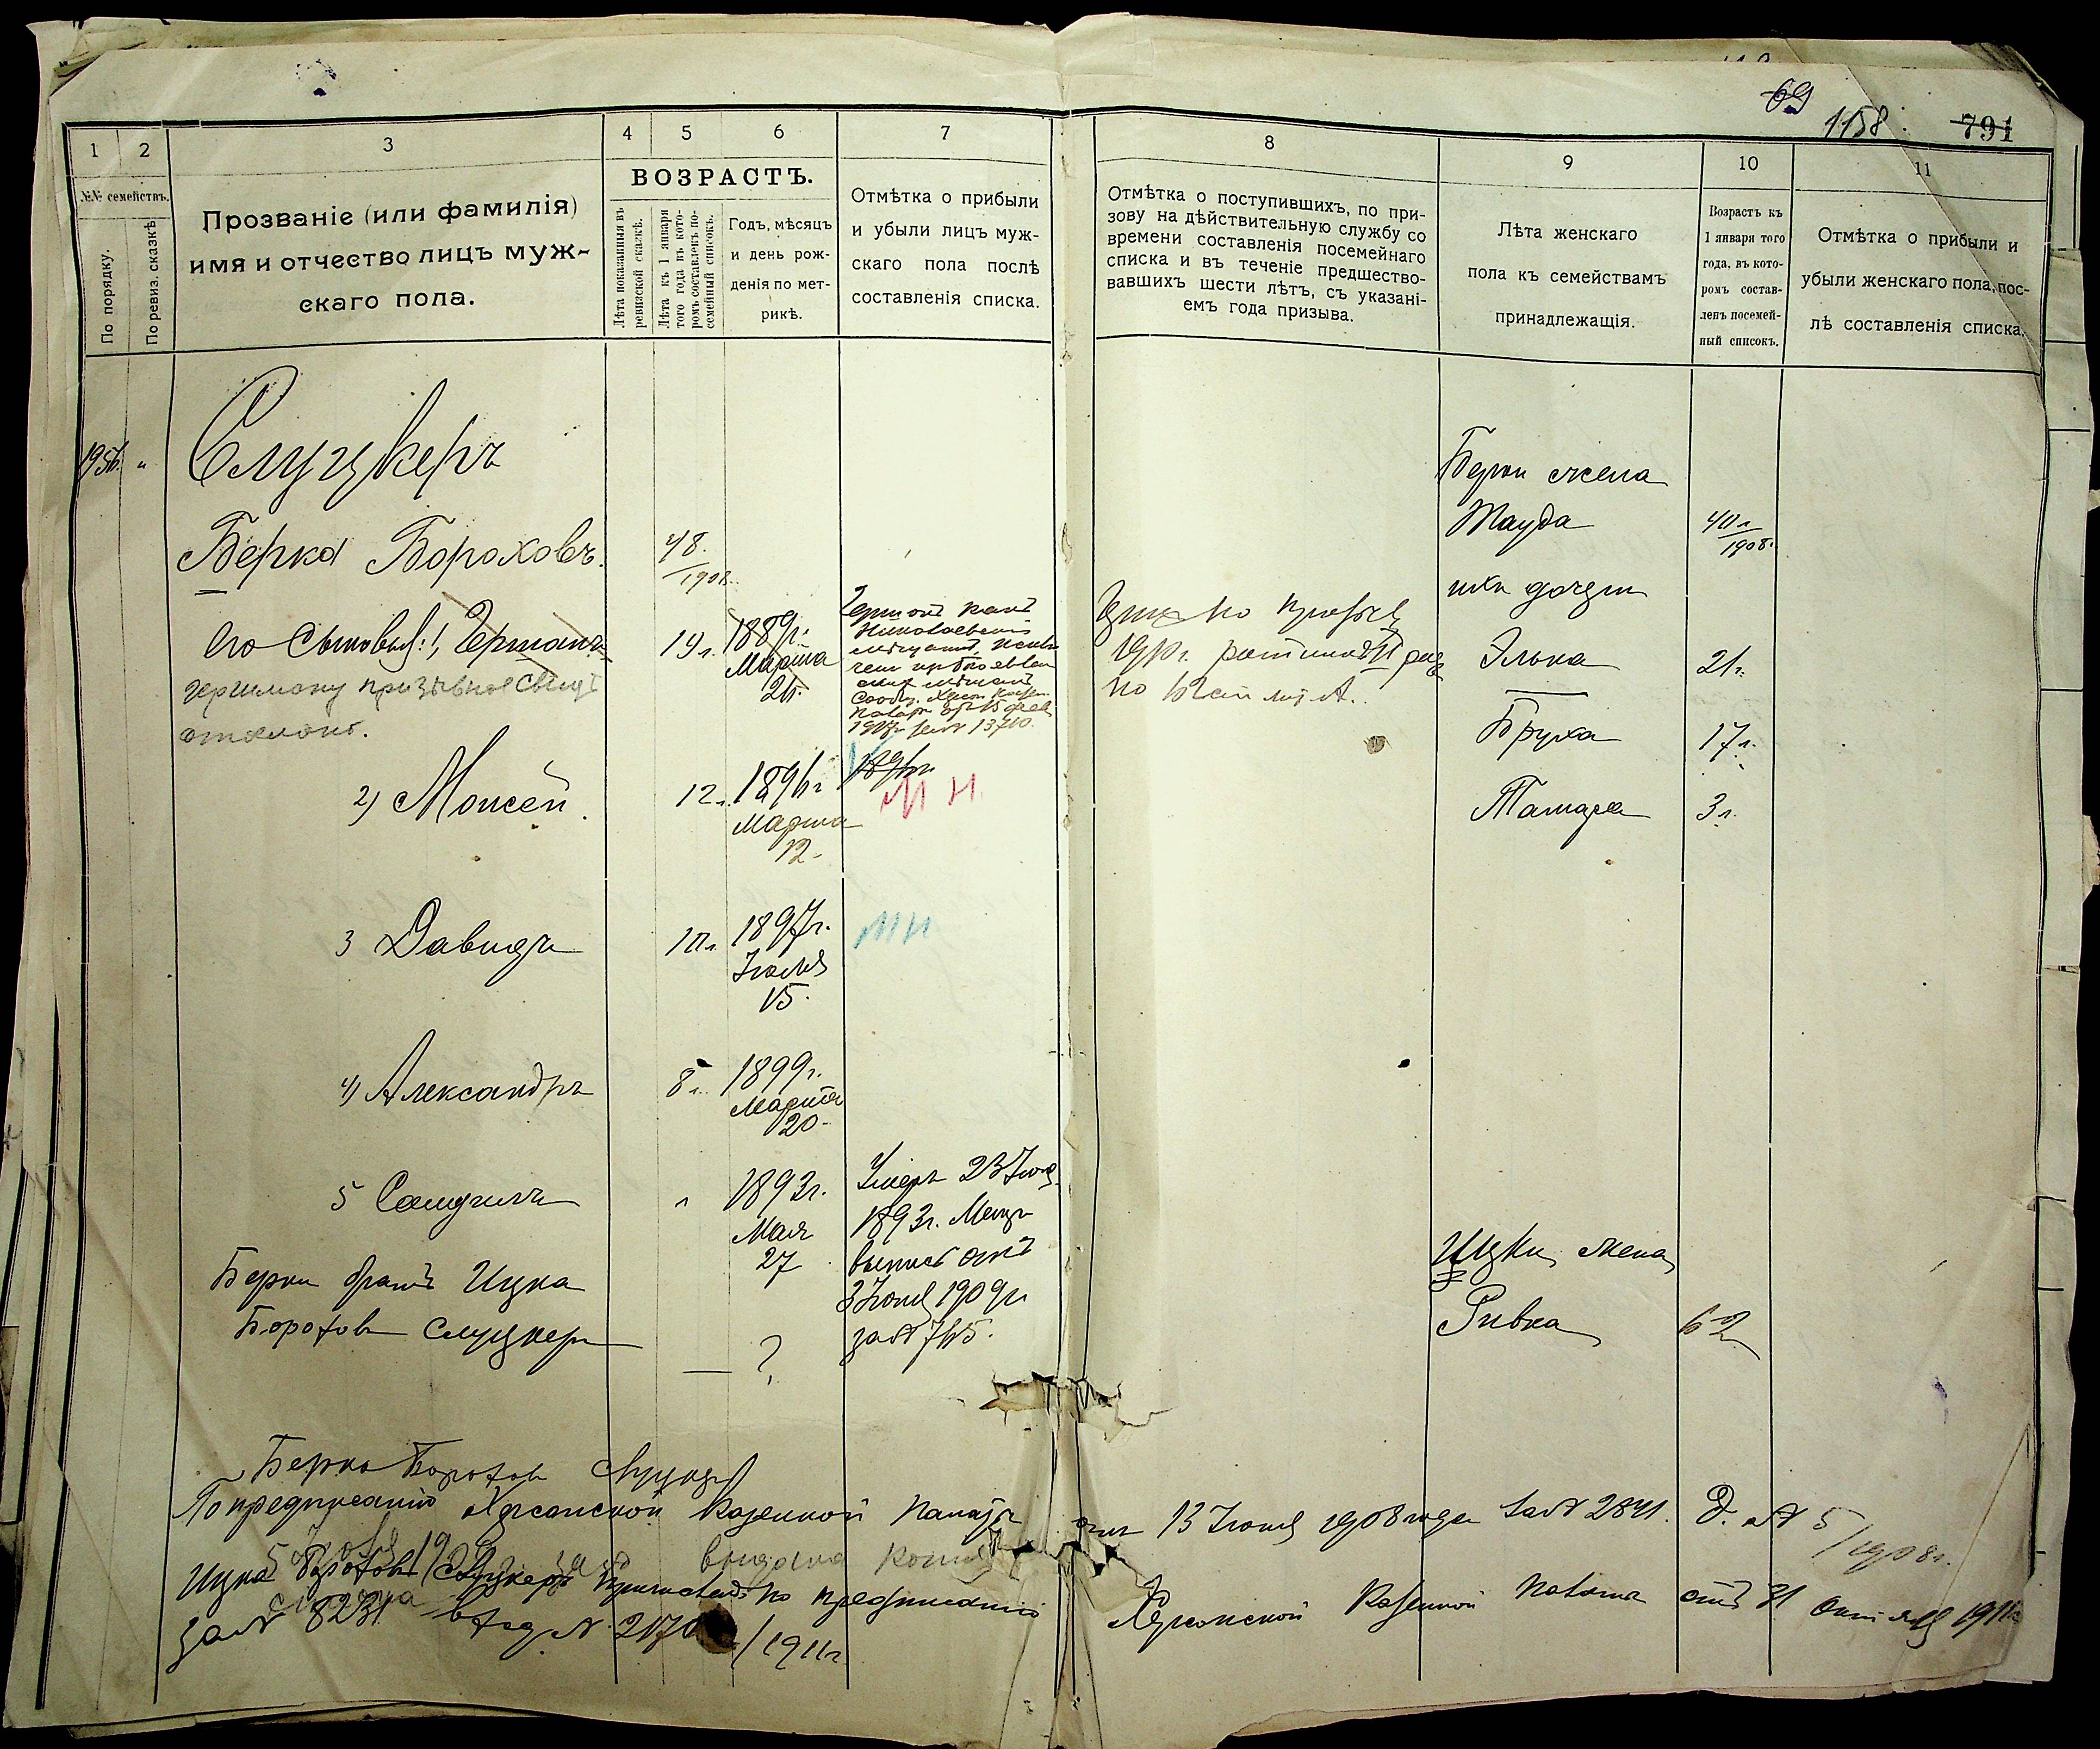 69
1158.
791
1
2
3
4
5
6
7
8
9
10
11
№№ семействъ.
По порядку.
По ревиз. сказкѣ
Прозваніе (или фамилія)
имя и отчество лицъ муж-
скаго пола.
ВОЗРАСТЪ.
Лѣта показанныя въ
ревизской сказкѣ.
Лѣта къ 1 января
того года въ кото-
ромъ составленъ по-
семейный списокъ.
Годъ, мѣсяцъ
и день рож-
денія по мет-
рикѣ.
Отмѣтка о прибыли
и убыли лицъ муж-
скаго пола послѣ
составленія списка.
Отмѣтка о поступившихъ, по при-
зову на дѣйствительную службу со
времени составленія посемейнаго
списка и въ теченіе предшество-
вавшихъ шести лѣтъ, съ указані-
емъ года призыва.
Лѣта женскаго
пола къ семействамъ
принадлежащія.
Возрастъ къ
1 января того
года, въ кото-
ромъ состав-
ленъ посемей-
ный списокъ.
Отмѣтка о прибыли и
убыли женскаго пола, пос-
лѣ составленія списка.
Слуцкеръ
Берка Бороховъ.
48.
1908.
Его сыновья: 1, Германъ
19 г. 1889 г.
Марта
26.
Гершону призывное свид
2) Моисей.
12 г. 1896 г
Марта
12.
МН
3 Давидъ
10 г. 1897 г.
Іюля
15.
МН
4) Александръ
8 г. 1899 г.
Марта
20.
5 Самуилъ
" 1893 г.
Мая
27
Умеръ 23 Іюля
1893 г. Метр
выпись отъ
3 Іюня 1909 г
за № 765.
Берки братъ Ицка
Борохов Слуцкеръ
— ?
Берки жена
Тауба
40 г
1908 г.
ихъ дочери
Элька
21 г.
Бруха
17 г.
Тамара
3 г.
Ицки жена
Ривка
62
Берко Борохов Слуцкер
По предписанію Херсонской Казенной Палаты от 13 Іюня 1908 года за № 2841. Д. № 5/1908 г.
выдана копія
Ицка Борохов Слуцкеръ причисленъ по предписанію Херсонской Казенной Палаты отъ 31 Октября 1911 г
за № 8231 вход. № 2170/1911 г